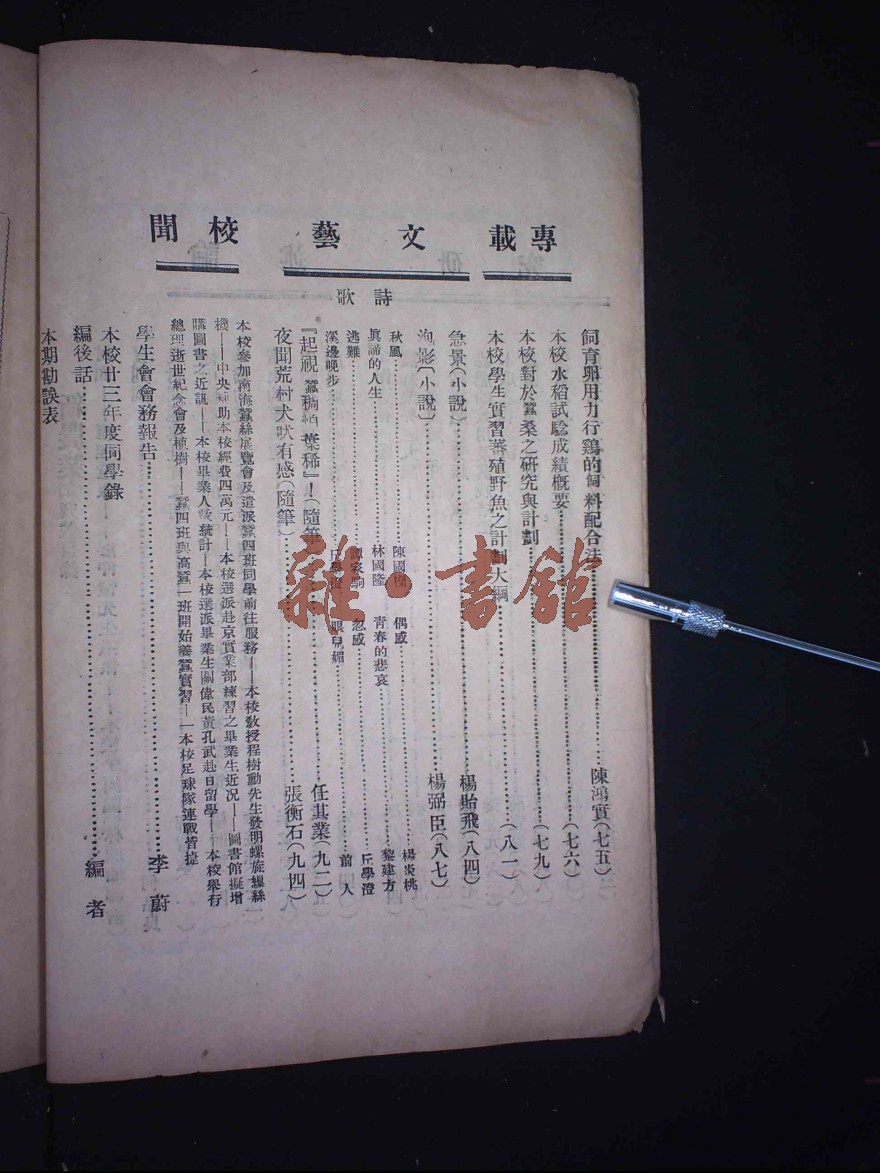 專載
文藝
校聞
飼育卵用力行鷄的飼料配合法 陳鴻實(七五)
本校水稻試驗成績概要 (七六)
本校對於蠶桑之研究與計劃 (七九)
本校學生實習蓄殖野魚之計劃大綱 (八一)
急景(小說) 楊貽飛(八四)
洵影(小說) 楊弼臣(八七)
詩歌
秋風 陳國樑 偶感 楊炎桃
眞諦的人生 林國隆 青春的悲哀 黎建方
逃難 譚家駒 忽感 丘學澄
溪邊晚步 丘學澄 眼兒媚 前人
『起視蠶稠怕葉稀』!(隨筆) 任其業(九二)
夜聞荒村犬吠有感(隨筆) 張衡石(九四)
本校參加南海蠶絲展覽會及遣派蠶四班同學前往服務——本校敎授程樹勳先生發明螺旋繅絲
機——中央補助本校經費四萬元——本校選派赴京實業部練習之畢業生近况——圖書館擬增
購圖書之近訊——本校畢業人數統計——本校選派畢業生關偉民黃孔武赴日留學——本校舉行
總理逝世紀念會及植樹——蠶四班與高蠶一班開始養蠶實習——本校足球隊連戰皆捷
學生會會務報告 李蔚
本校廿三年度同學錄
編後話 編者
本期勘誤表
雜·書館